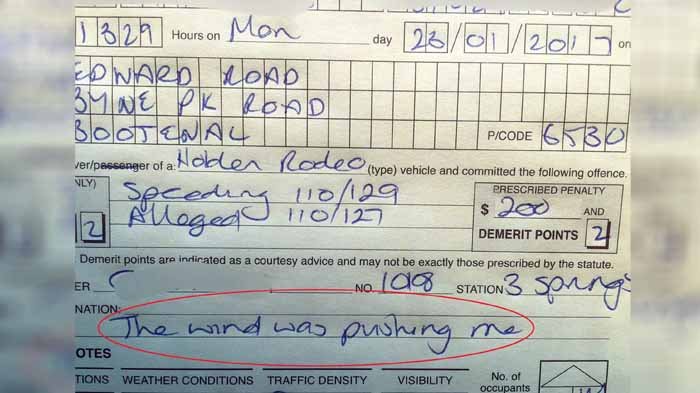 1329 Hours on Mon day 23/01/2017 on
EDWARD ROAD
BYNE PK ROAD
BOOTENAL P/CODE 6530
ver/passenger of a: Holden Rodeo (type) vehicle and committed the following offence.
NLY) Speeding 110/129 PRESCRIBED PENALTY
2 Alleged 110/127 $ 200 AND
DEMERIT POINTS 2
Demerit points are indicated as a courtesy advice and may not be exactly those prescribed by the statute.
ER NO. 1098 STATION 3 Springs
NATION:
The wind was pushing me
OTES
TIONS WEATHER CONDITIONS TRAFFIC DENSITY VISIBILITY No. of
occupants